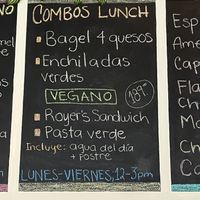 COMBOS LUNCH
Bagel 4 quesos
Enchiladas
verdes
VEGANO
189
Royer's Sandwich
Pasta verde
Incluye: agua del día
+ postre
LUNES-VIERNES, 12-3pm
Esp
Ame
Cap
Fla
Ch
Mo
Ch
Ca